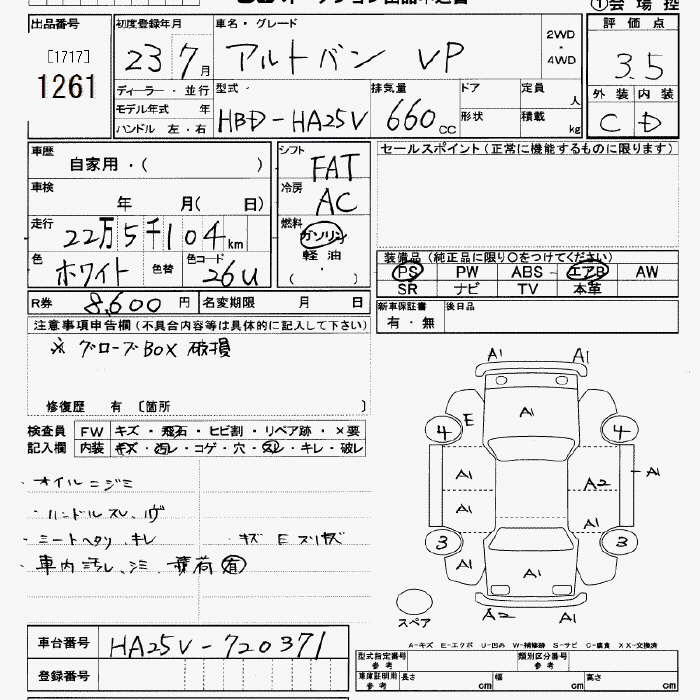 ①会場控
出品番号 初度登録年月 車名・グレード 評価点
[1717] 1261
23 7月 アルトバン VP 2WD・4WD 3.5
ディーラー・並行 型式 排気量 ドア 定員 人 外装 内装
モデル年式 年 HBD-HA25V 660cc 形状 積載 kg C D
ハンドル 左・右
車歴 自家用・( ) シフト FAT セールスポイント(正常に機能するものに限ります)
車検 年 月( 日) 冷房 AC
走行 22万5千104km 燃料 ガソリン
軽油
( )
色 ホワイト 色替 色コード 26U
装備品(純正品に限り○をつけてください)
PS PW ABS エアB AW
SR ナビ TV 本革
R券 8,600円 名変期限 月 日 新車保証書 有・無 後日品
注意事項申告欄(不具合内容等は具体的に記入して下さい)
※ グローブBOX 破損
修復歴 有 [箇所 ]
検査員 FW キズ・飛石・ヒビ割・リペア跡・×要
記入欄 内装 キズ・汚レ・コゲ・穴・スレ・キレ・破レ
・オイルニジミ
・ハンドルスレ、
・シートヘタリ、キレ キズ E スリキズ
・車内汚レ、シミ 荷 有
A1 A1
A1
E
4 4
A1 A2 A1
A1 A1
3 3
A1 A1
A2 A1
スペア
A-キズ E-エクボ U-凹み W-補修跡 S-サビ C-腐食 XX-交換済
車台番号 HA25V-720371
登録番号
型式指定番号 参考 類別区分番号 参考
車庫証明用 参考 長さ cm 幅 cm 高さ cm